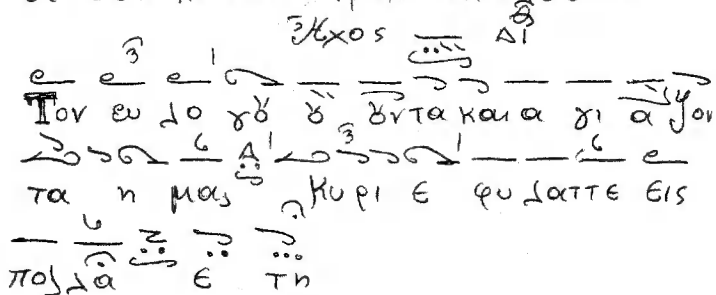 Ἦχος Δι
Τον ευ λο γȣ ȣ ȣντα και α γι α ζον
τα η μας Κυρι ε φυ λαττε εις
πολλα ε τη